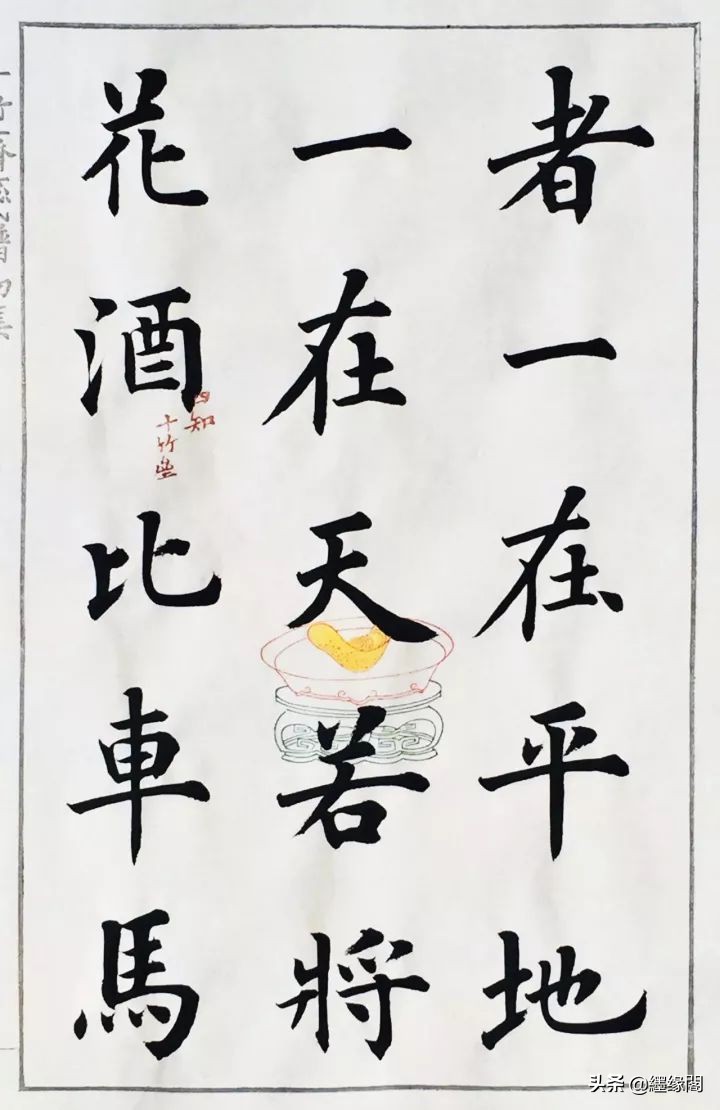 者一在平地
一在天若將
花酒比車馬
十竹齋
頭条 @纒缘閣